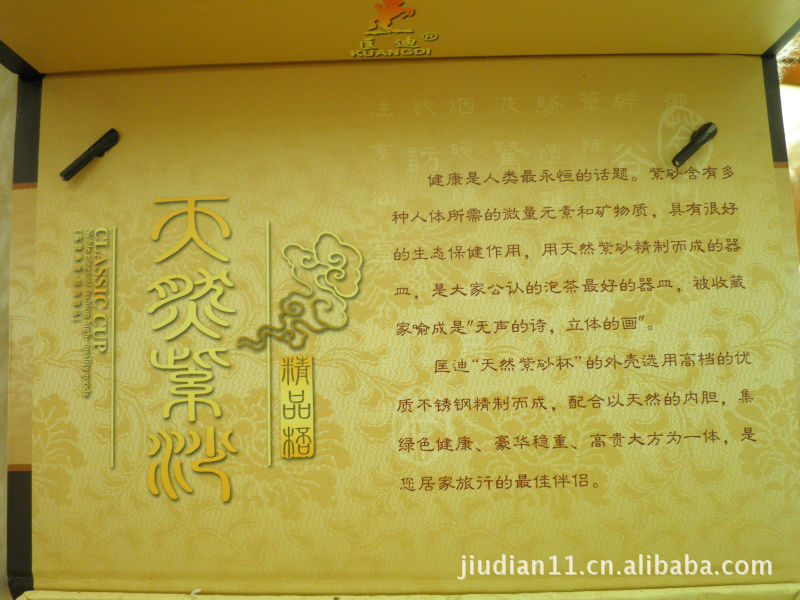 匡迪®
KUANGDI
健康是人类最永恒的话题。紫砂含有多
种人体所需的微量元素和矿物质，具有很好
的生态保健作用，用天然紫砂精制而成的器
皿，是大家公认的泡茶最好的器皿，被收藏
家喻成是"无声的诗，立体的画"。
匡迪"天然紫砂杯"的外壳选用高档的优
质不锈钢精制而成，配合以天然的内胆，集
绿色健康、豪华稳重、高贵大方为一体，是
您居家旅行的最佳伴侣。
天然紫沙
精品杯
CLASSIC CUP
jiudian11.cn.alibaba.com